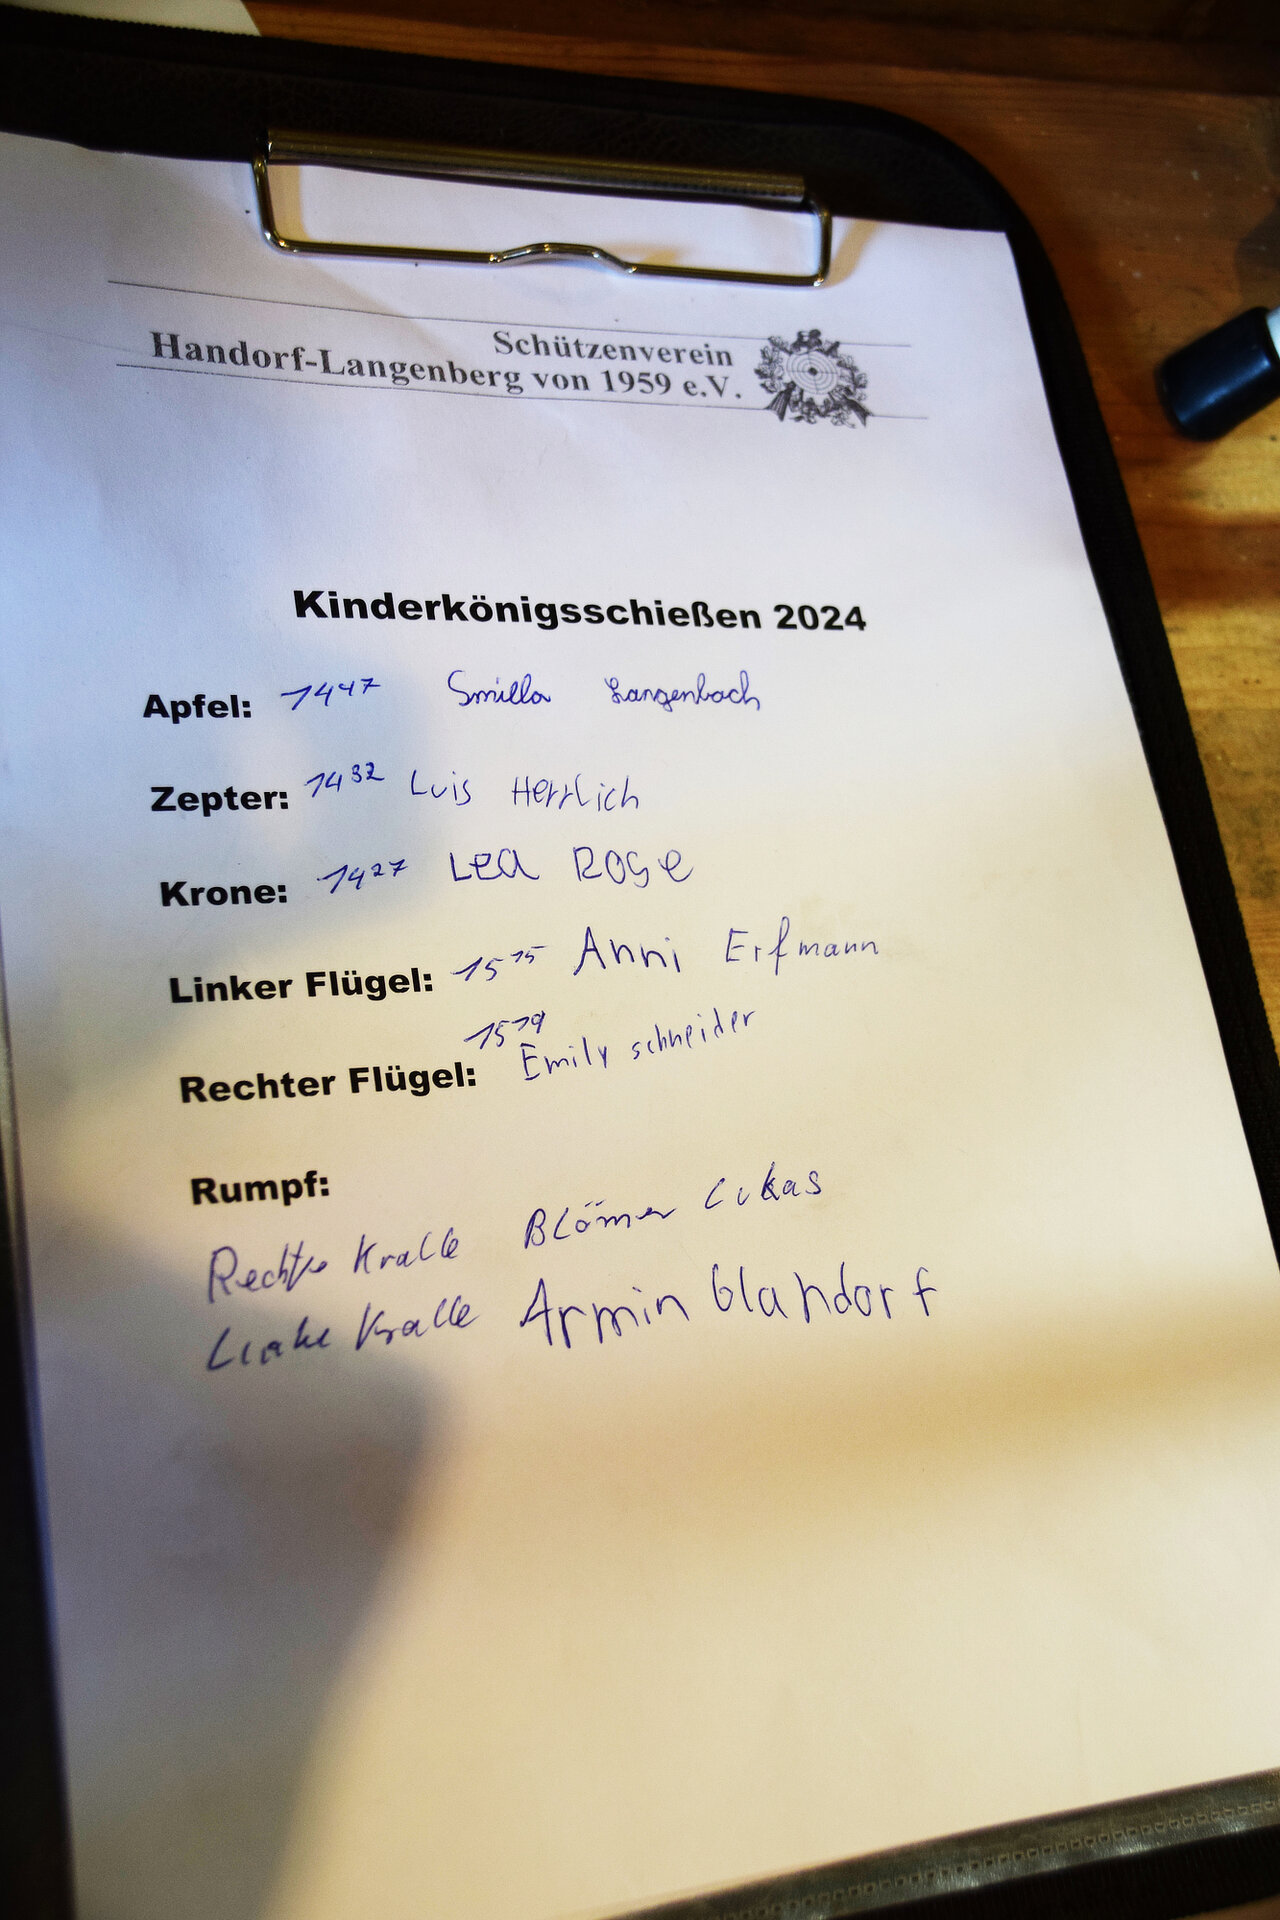 Schützenverein
Handorf-Langenberg von 1959 e.V.
Kinderkönigsschießen 2024
Apfel: 14 47 Smilla Langenbach
Zepter: 14 32 Luis Herrlich
Krone: 14 27 Lea Rose
Linker Flügel: 15 15 Anni Erfmann
Rechter Flügel: 15 19 Emily schneider
Rumpf:
Rechte Kralle Blömer Lukas
Linke Kralle Armin Glandorf